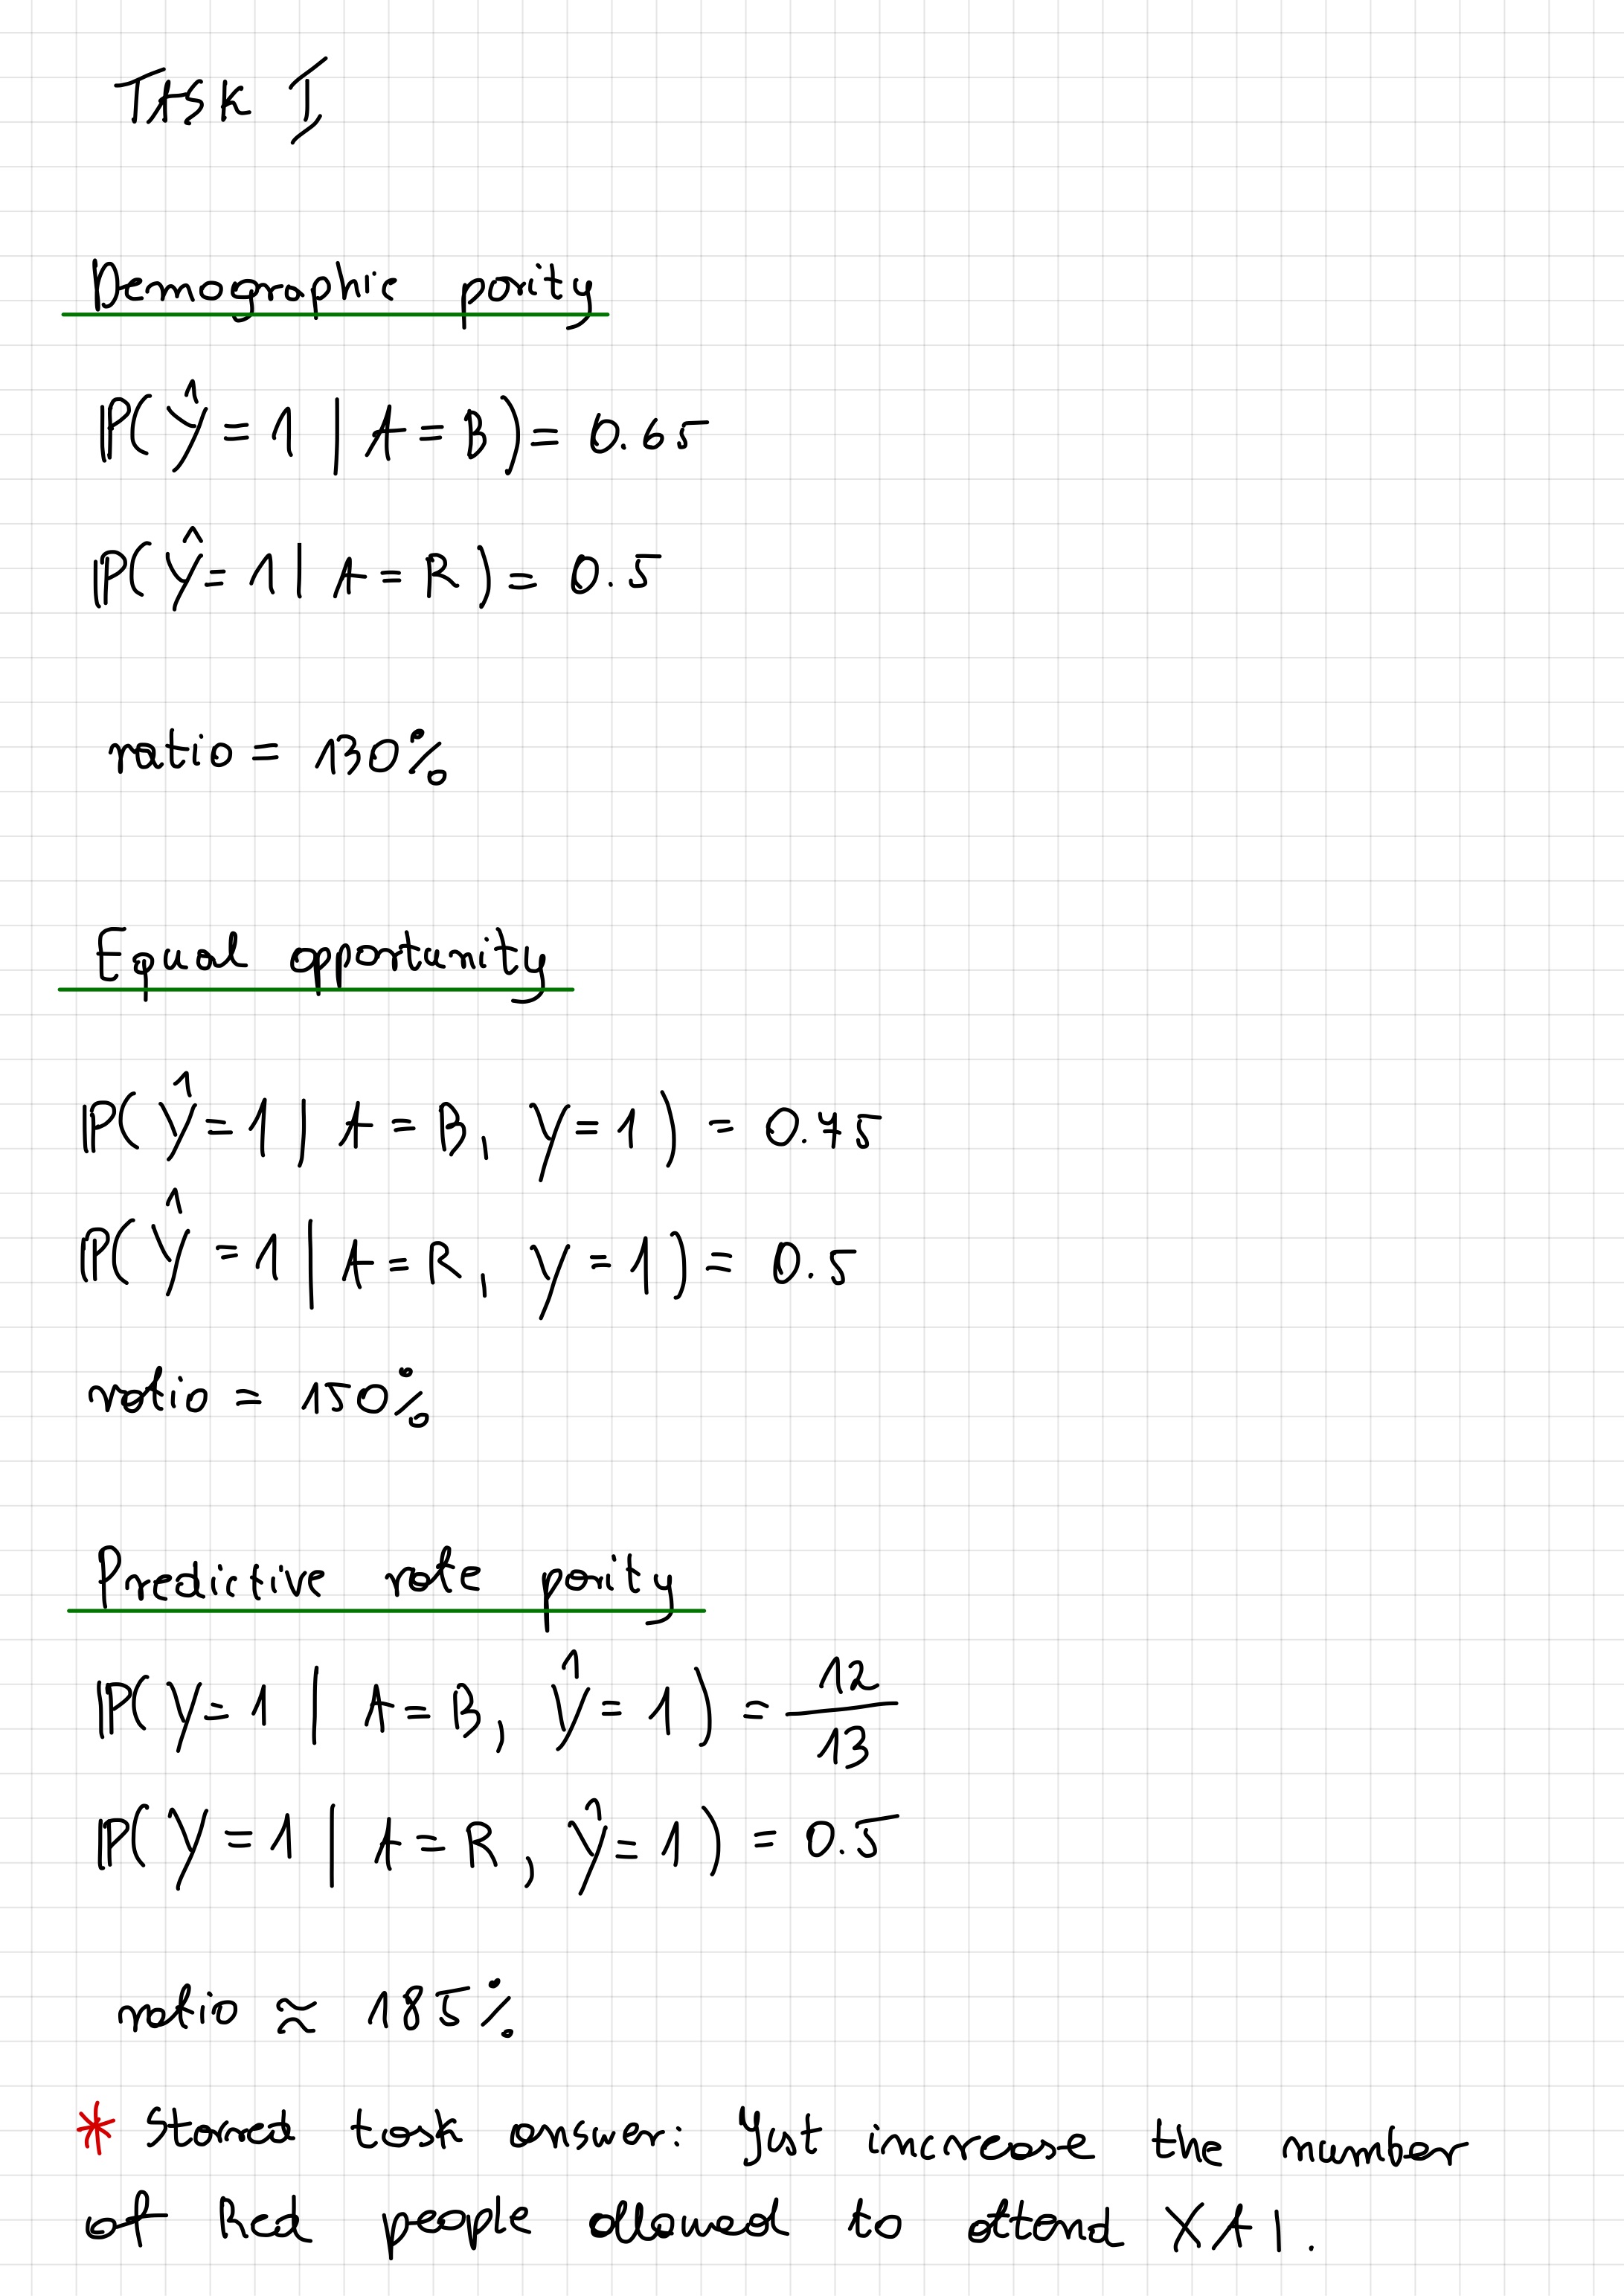 TASK I
Demographic parity
P(Ŷ = 1 | A = B) = 0.65
P(Ŷ = 1 | A = R) = 0.5
ratio = 130%
Equal opportunity
P(Ŷ = 1 | A = B, Y = 1) = 0.75
P(Ŷ = 1 | A = R, Y = 1) = 0.5
ratio = 150%
Predictive rate parity
P(Y = 1 | A = B, Ŷ = 1) = 12/13
P(Y = 1 | A = R, Ŷ = 1) = 0.5
ratio ≈ 185%
* Starred task answer: Just increase the number
of Red people allowed to attend XAI.